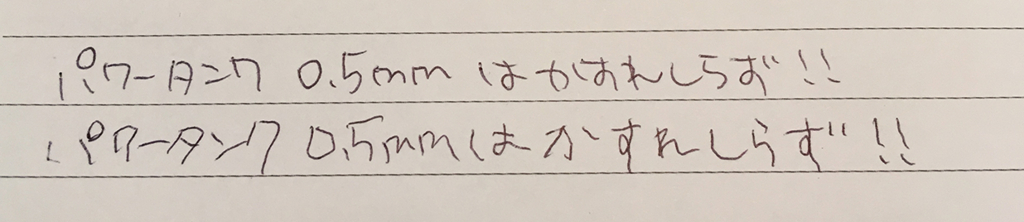 パワータンク 0.5mm はかすれしらず!!
パワータンク 0.5mmは かすれしらず!!